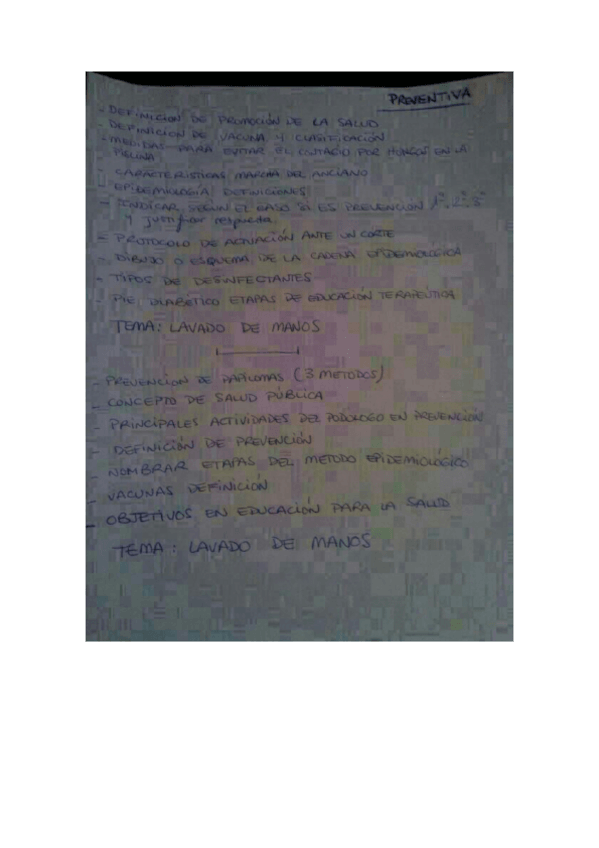 PREVENTIVA
- DEFINICION DE PROMOCIÓN DE LA SALUD
- DEFINICION DE VACUNA Y CLASIFICACIÓN
- MEDIDAS PARA EVITAR EL CONTAGIO POR HONGOS EN LA
PISCINA
CARACTERISTICAS MARCHA DEL ANCIANO
- EPIDEMIOLOGÍA DEFINICIONES
- INDICAR SEGÚN EL CASO SI ES PREVENCIÓN 1ª, 2ª, 3ª
Y justificar respuesta.
- PROTOCOLO DE ACTUACIÓN ANTE UN CORTE
- DIBUJO O ESQUEMA DE LA CADENA EPIDEMIOLÓGICA
- TIPOS DE DESINFECTANTES
PIE DIABÉTICO ETAPAS DE EDUCACIÓN TERAPEUTICA
TEMA: LAVADO DE MANOS
- PREVENCIÓN DE PAPILOMAS (3 METODOS)
- CONCEPTO DE SALUD PÚBLICA
- PRINCIPALES ACTIVIDADES DEL PODOLOGO EN PREVENCION
- DEFINICIÓN DE PREVENCIÓN
- NOMBRAR ETAPAS DEL METODO EPIDEMIOLÓGICO
- VACUNAS DEFINICIÓN
- OBJETIVOS EN EDUCACIÓN PARA LA SALUD
TEMA: LAVADO DE MANOS